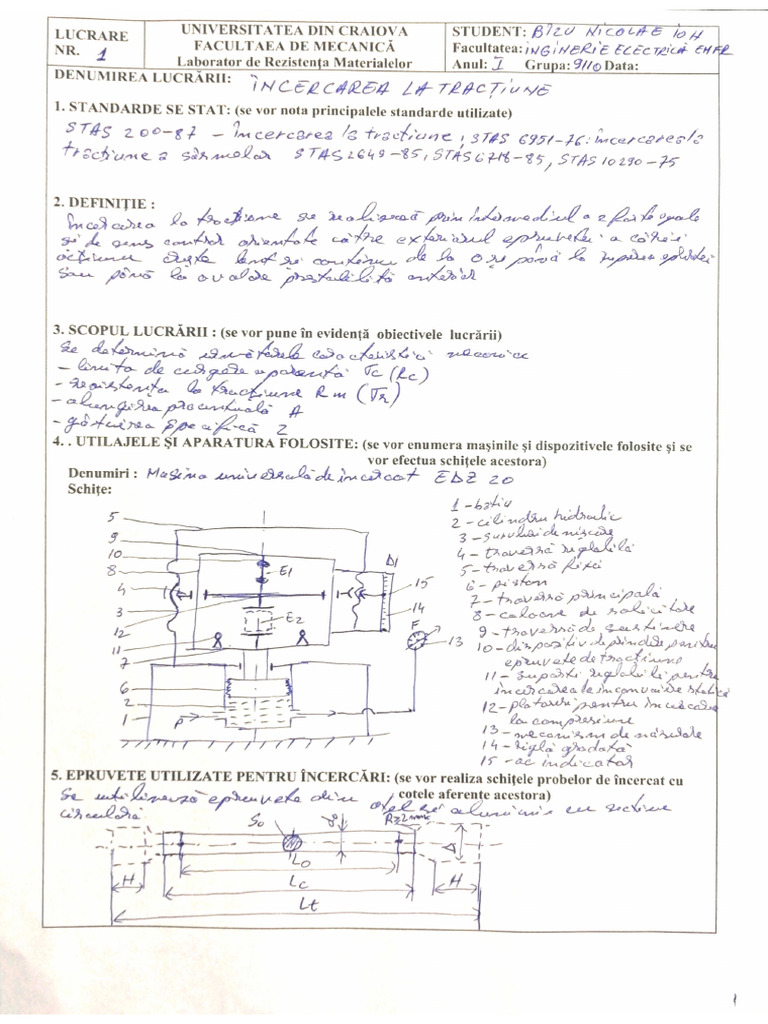 LUCRARE NR. 1
UNIVERSITATEA DIN CRAIOVA
FACULTAEA DE MECANICĂ
Laborator de Rezistența Materialelor
STUDENT: BÎZU NICOLAE ION
Facultatea: INGINERIE ELECTRICĂ EMFR
Anul: I Grupa: 9110 Data:
DENUMIREA LUCRĂRII: ÎNCERCAREA LA TRACȚIUNE
1. STANDARDE SE STAT: (se vor nota principalele standarde utilizate)
STAS 200-87 – Încercarea la tracțiune, STAS 6951-76: încercarea la
tracțiune a sârmelor STAS 2649-85, STAS 6718-85, STAS 10290-75
2. DEFINIȚIE :
Încercarea la tracțiune se realizează prin intermediul a 2 forțe egale
și de sens contrar orientate către exteriorul epruvetei a căror
acțiune crește lent și continuu de la 0 și până la ruperea epruvetei
sau până la o valoare prestabilită anterior
3. SCOPUL LUCRĂRII : (se vor pune în evidență obiectivele lucrării)
Se determină următoarele caracteristici mecanice
– limita de curgere aparentă σc (Rc)
– rezistența la tracțiune Rm (σr)
– alungirea procentuală A
– gâtuirea specifică Z
4. . UTILAJELE ȘI APARATURA FOLOSITE: (se vor enumera mașinile și dispozitivele folosite și se
vor efectua schițele acestora)
Denumiri : Mașina universală de încercat EDZ 20
Schițe:
5
9
10
8
4
3
12
11
7
6
2
1
E1
E2
Δl
15
14
F
13
P
1 – batiu
2 – cilindru hidraulic
3 – șuruburi de mișcare
4 – traversă reglabilă
5 – traversă fixă
6 – piston
7 – traversă principală
8 – coloane de solicitare
9 – traversă de susținere
10 – dispozitiv de prindere pentru
epruvete de tracțiune
11 – suporți reglabili pentru
încercarea la încovoiere statică
12 – platouri pentru încercarea
la compresiune
13 – mecanism de măsurare
14 – riglă gradată
15 – ac indicator
5. EPRUVETE UTILIZATE PENTRU ÎNCERCĂRI: (se vor realiza schițele probelor de încercat cu
cotele aferente acestora)
Se utilizează epruvete din oțel și aluminiu cu secțiune
circulară
S0
R≥2mm
L0
H
Lc
H
Lt
1